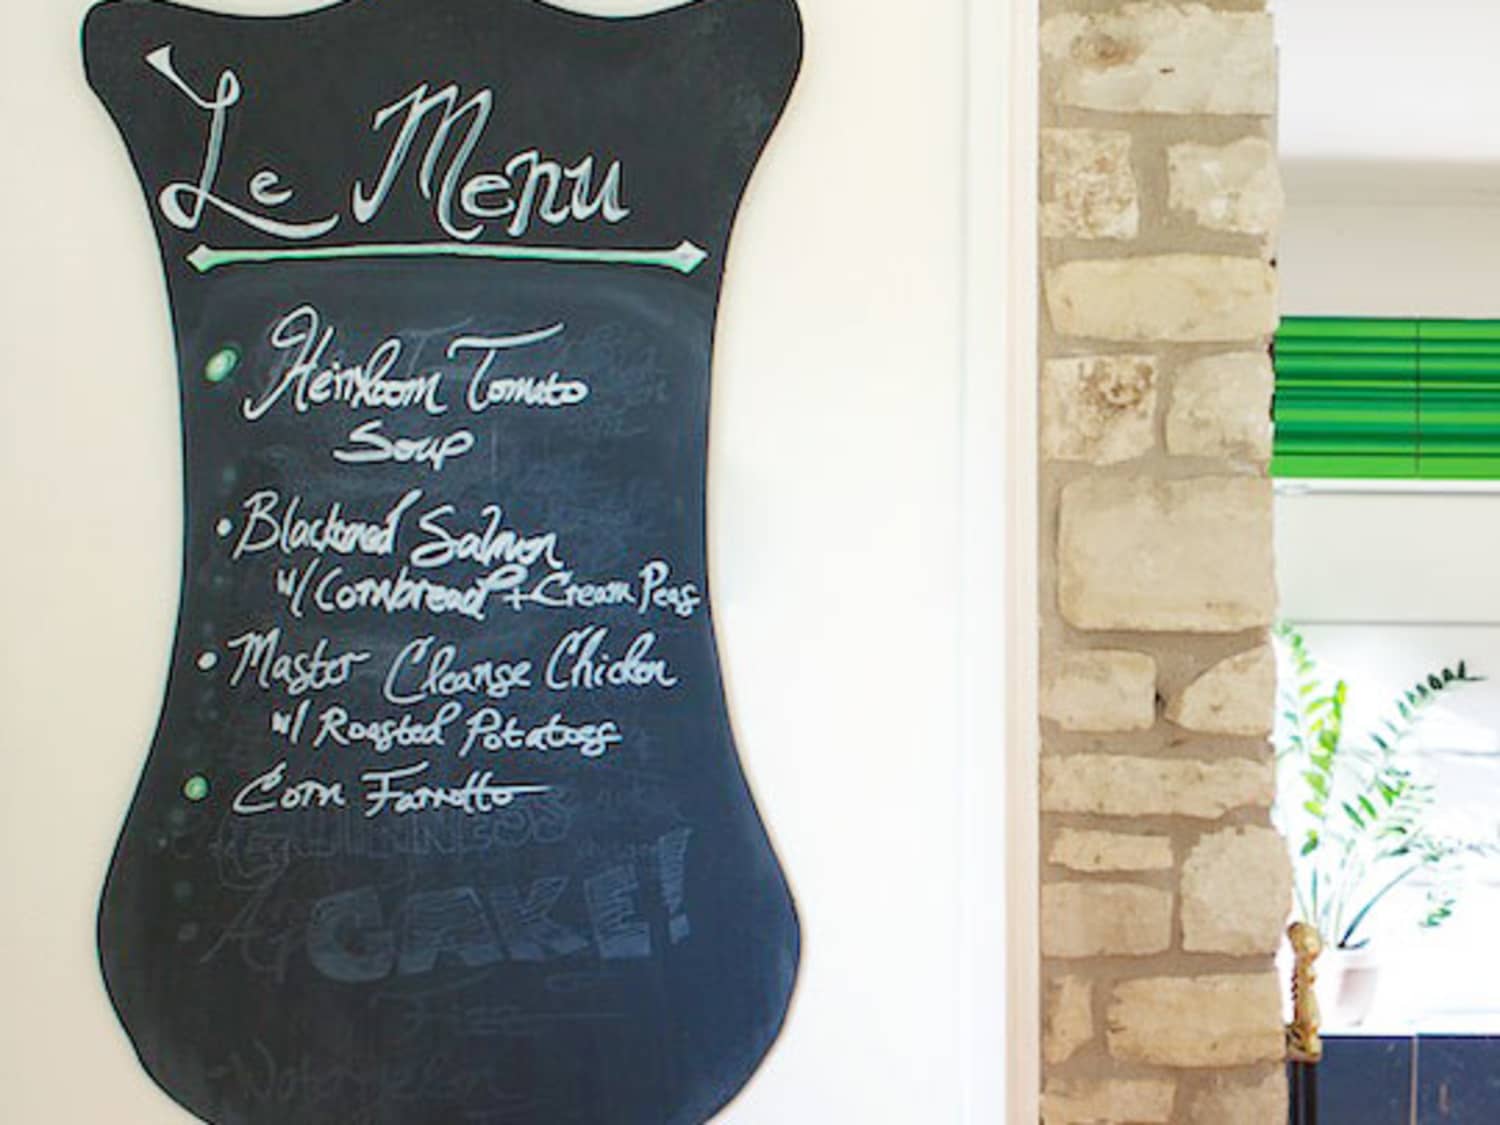 Le Menu
Heirloom Tomato
Soup
Blackened Salmon
w/ Cornbread + Cream Peas
Master Cleanse Chicken
w/ Roasted Potatoes
Corn Farrotto
GUINNESS
CAKE!